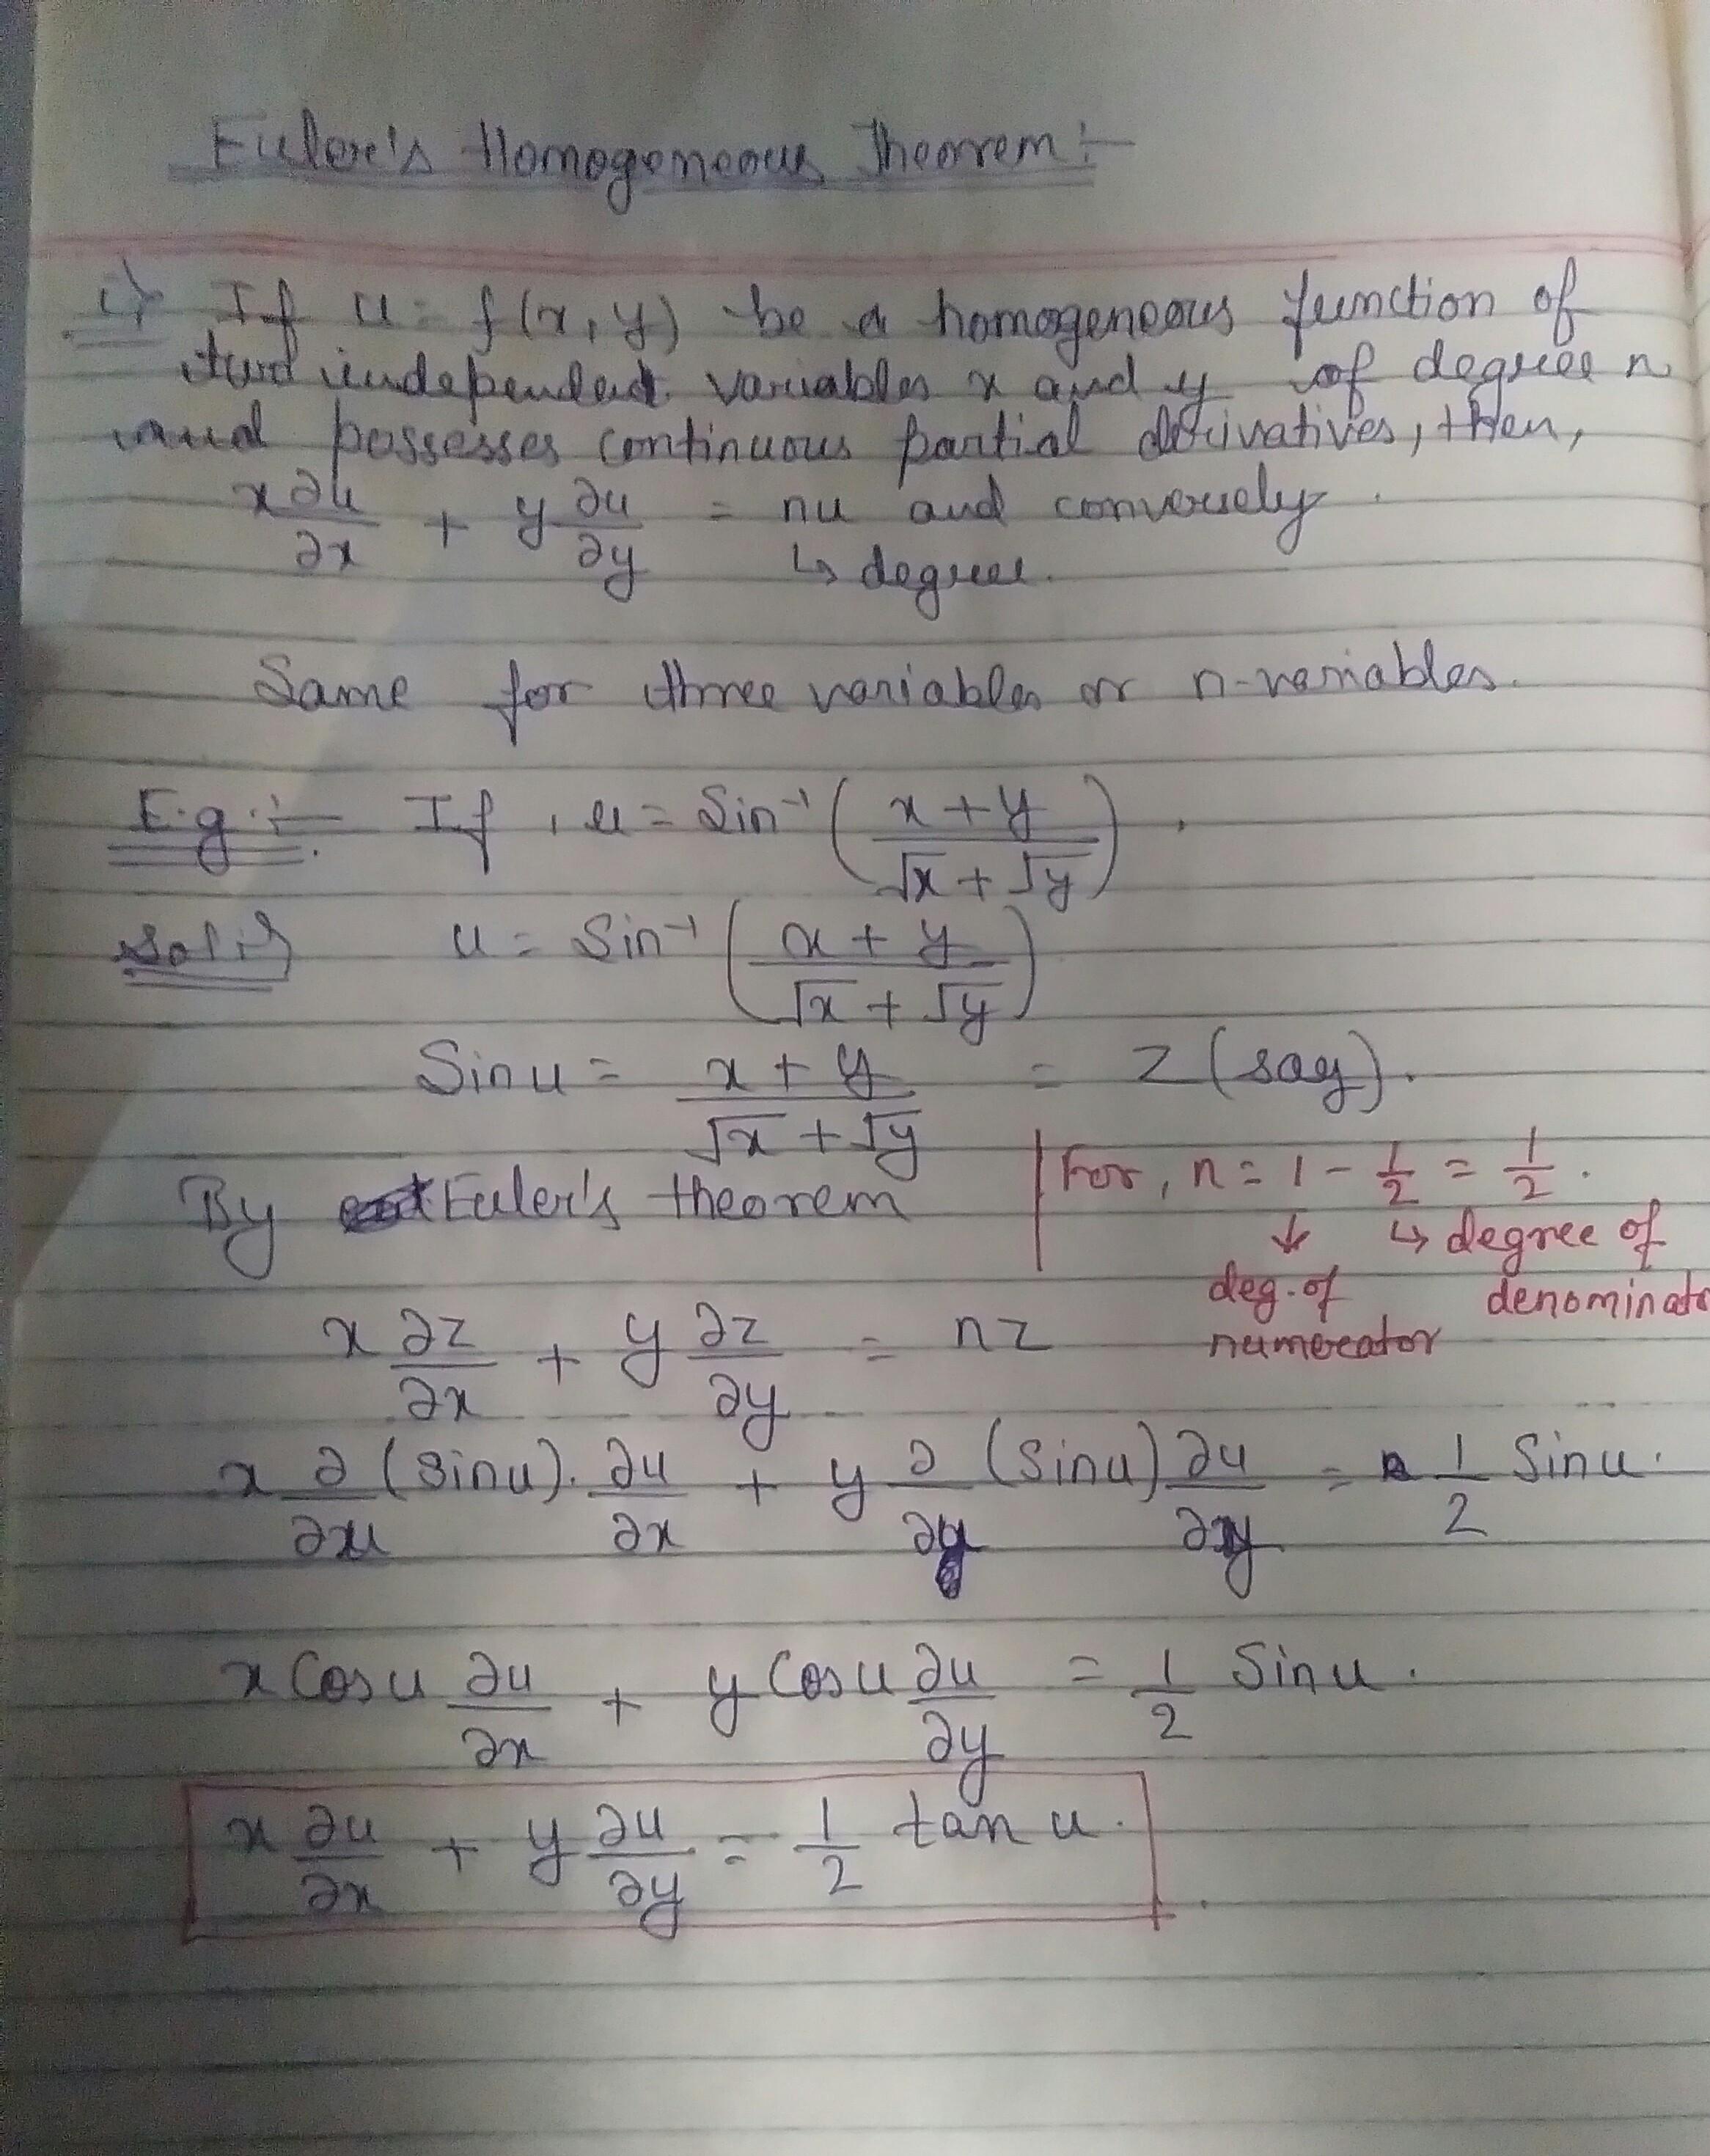 Euler's Homogeneous Theorem:-
i) If u = f(x, y) be a homogeneous function of
two independent variables x and y of degree n
and possesses continuous partial derivatives, then,
x ∂u/∂x + y ∂u/∂y = nu and conversely.
↳ degree.
Same for three variables or n-variables.
E.g.:- If, u = Sin⁻¹ ( x + y / √x + √y ).
Sol:- u = Sin⁻¹ ( x + y / √x + √y )
Sin u = x + y / √x + √y = z (say).
By Euler's theorem
For, n = 1 - 1/2 = 1/2.
↓ ↳ degree of
deg. of denominato
numerator
x ∂z/∂x + y ∂z/∂y = nz
x ∂/∂u (sinu). ∂u/∂x + y ∂/∂y (Sinu) ∂u/∂y = 1/2 Sinu.
x Cosu ∂u/∂x + y Cosu ∂u/∂y = 1/2 Sinu.
x ∂u/∂x + y ∂u/∂y = 1/2 tan u.